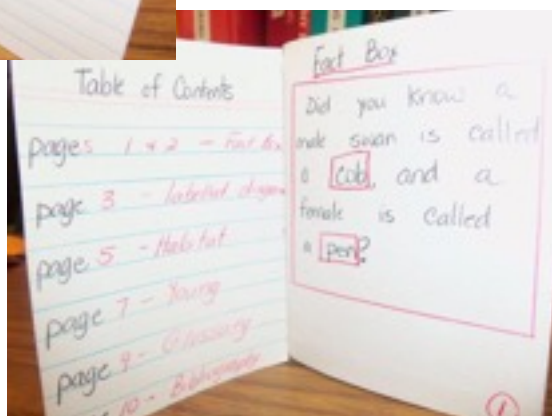 Table of Contents
pages 1 & 2 - Fact Box
page 3 - labelled diagram
page 5 - Habitat
page 7 - Young
page 9 - Glossary
10 - Bibliography
Fact Box
Did you know a
male swan is called
a cob, and a
female is called
a pen?
1